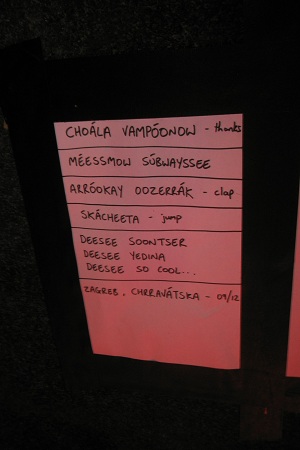 CHOÁLA VAMPÓONOW - thanks
MÉESSMOW SÚBWAYSSEE
ARRÓOKAY OOZERRÁK - clap
SKÁCHEETA - jump
DEESEE SOONTSER
DEESEE YEDINA
DEESEE SO COOL...
ZAGREB, CHRRAVÁTSKA - 09/12